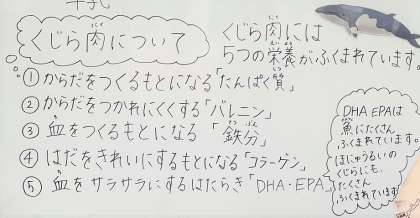 牛乳
くじら肉について
にく
くじら肉には
にく
5つの栄養がふくまれています。
えいよう
①からだをつくるもとになる「たんぱく質」
しつ
②からだをつかれにくくする「バレニン」
③血をつくるもとになる「鉄分」
ち
てつぶん
④はだをきれいにするもとになる「コラーゲン」
⑤血をサラサラにするはたらき「DHA・EPA」
ち
DHA EPAは
魚にたくさん
ふくまれています。
ほにゅうるいの
くじらにも、
たくさん
ふくまれています